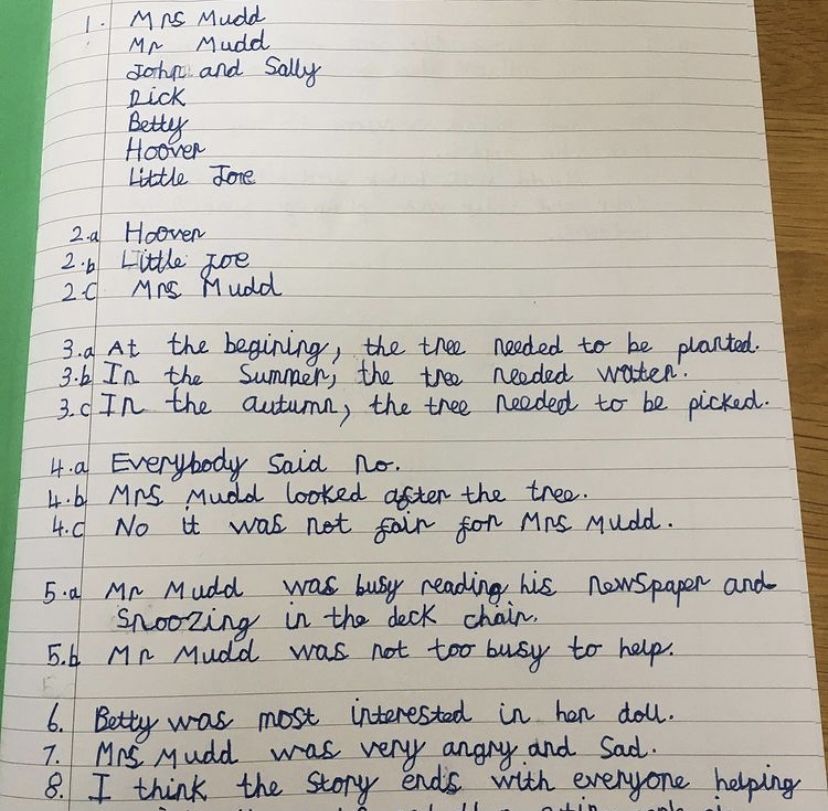 1. Mrs Mudd
Mr Mudd
John and Sally
Dick
Betty
Hoover
Little Joe
2.a Hoover
2.b Little Joe
2.c Mrs Mudd
3.a At the begining, the tree needed to be planted.
3.b In the Summer, the tree needed water.
3.c In the autumn, the tree needed to be picked.
4.a Everybody said no.
4.b Mrs Mudd looked after the tree.
4.c No it was not fair for Mrs Mudd.
5.a Mr Mudd was busy reading his newspaper and
snoozing in the deck chair.
5.b Mr Mudd was not too busy to help.
6. Betty was most interested in her doll.
7. Mrs Mudd was very angry and sad.
8. I think the story ends with everyone helping